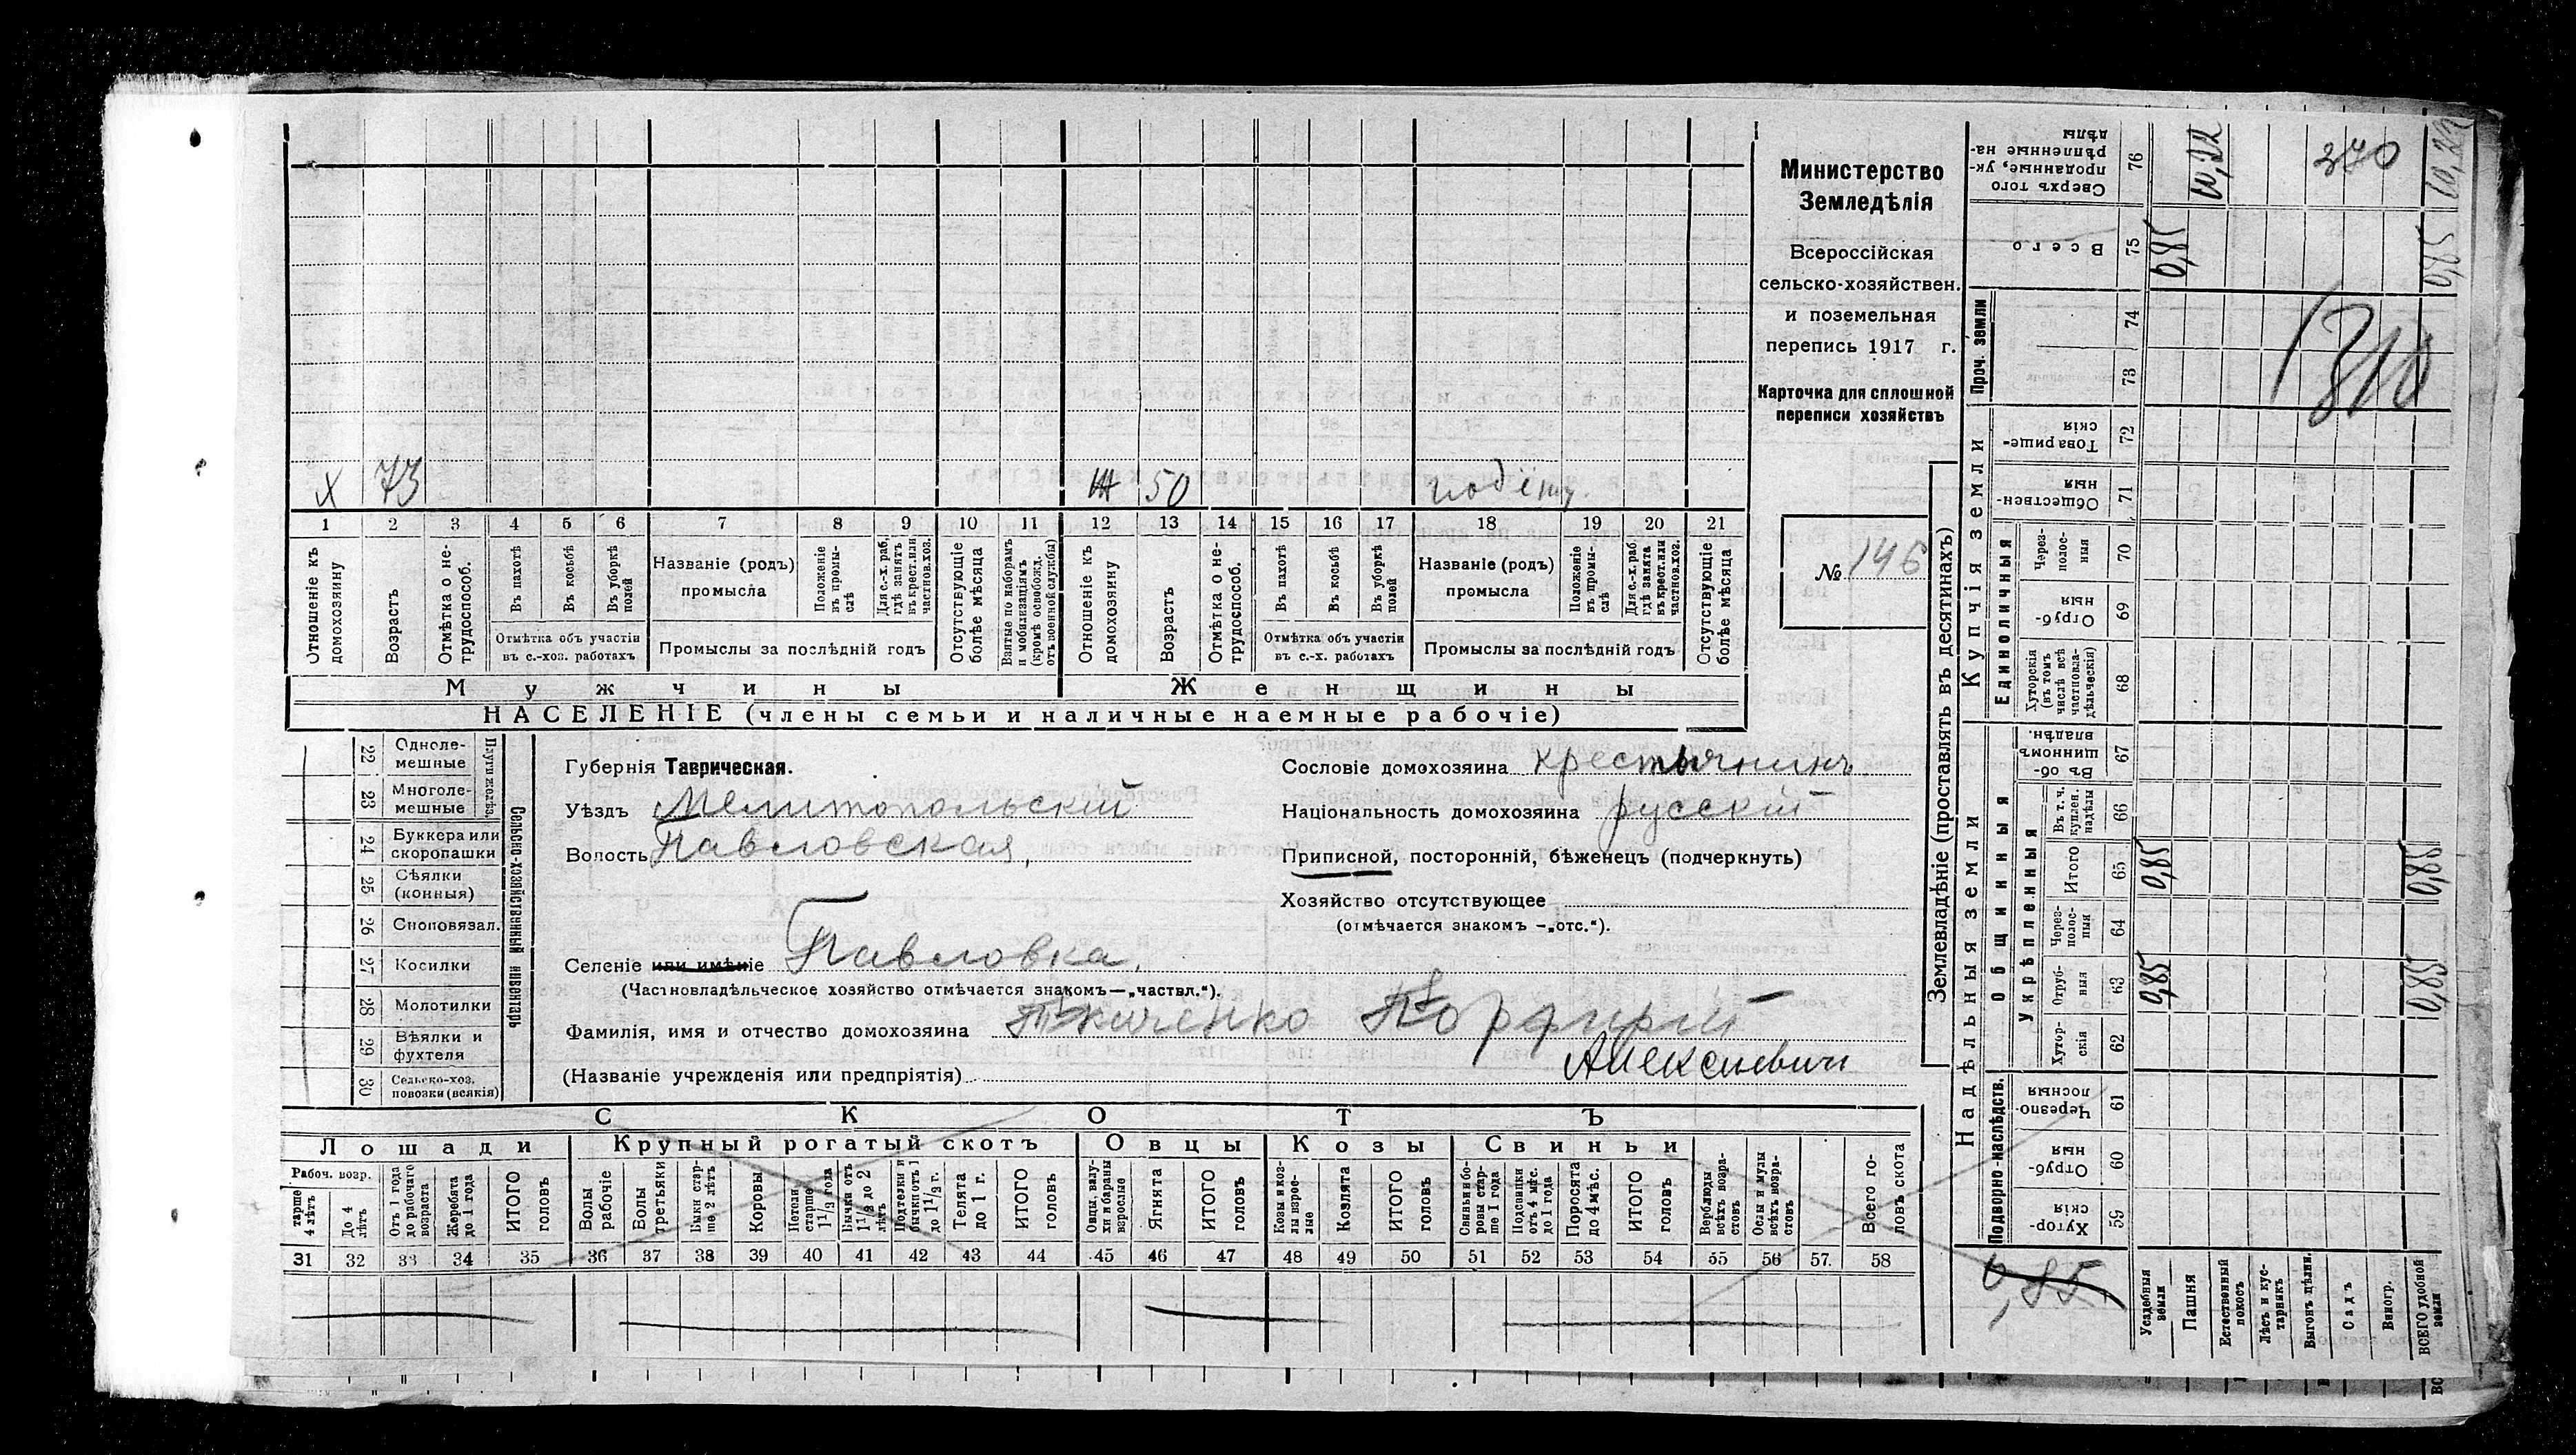 Министерство
Земледѣлія
Всероссійская
сельско-хозяйствен.
и поземельная
перепись 1917 г.
Карточка для сплошной
переписи хозяйствъ
№ 146
х 73 50
1 2 3 4 5 6 7 8 9 10 11 12 13 14 15 16 17 18 19 20 21
Отношеніе къ домохозяину
Возрастъ
Отмѣтка о не-трудоспособ.
Въ пахотѣ
Въ косьбѣ
Въ уборкѣ полей
Отмѣтка объ участіи въ с.-хоз. работахъ
Названіе (родъ) промысла
Положеніе въ промы-слѣ
Для с.-х. раб. гдѣ занятъ въ крест. или частнов. хоз.
Промыслы за послѣдній годъ
Отсутствующіе болѣе мѣсяца
Взятые по наборамъ и мобилизаціямъ (кромѣ освобожд. отъ военной службы)
Отношеніе къ домохозяину
Возрастъ
Отмѣтка о не-трудоспособ.
Въ пахотѣ
Въ косьбѣ
Въ уборкѣ полей
Отмѣтка объ участіи въ с.-х. работахъ
Названіе (родъ) промысла
Положеніе въ промы-слѣ
Для с.-х. раб. гдѣ занята въ крест. или частнов. хоз.
Промыслы за послѣдній годъ
Отсутствующіе болѣе мѣсяца
Мужчины Женщины
НАСЕЛЕНІЕ (члены семьи и наличные наемные рабочіе)
Сельско-хозяйственный инвентарь
22 Одноле-мешные
23 Многоле-мешные
24 Буккера или скоропашки
25 Сѣялки (конныя)
26 Сноповязал.
27 Косилки
28 Молотилки
29 Вѣялки и фухтеля
30 Сельско-хоз. повозки (всякія)
Губернія Таврическая.
Уѣздъ Мелитопольскій
Волость Павловская
Селеніе или имѣніе Павловка.
(Частновладѣльческое хозяйство отмѣчается знакомъ—„частвл.“).
Фамилія, имя и отчество домохозяина Ткаченко
Алексѣевичъ
(Названіе учрежденія или предпріятія)
Сословіе домохозяина крестьянинъ
Національность домохозяина русскій
Приписной, посторонній, бѣженецъ (подчеркнуть)
Хозяйство отсутствующее
(отмѣчается знакомъ —„отс.“).
СКОТЪ
Лошади Крупный рогатый скотъ Овцы Козы Свиньи
Рабоч. возр.
тарше 4 лѣтъ
До 4 лѣтъ
Отъ 1 года до рабочаго возраста
Жеребята до 1 года
ИТОГО головъ
Волы рабочіе
Волы третьяки
Быки стар-ше 2 лѣтъ
Коровы
Нетели старше 1 1/2 года
Бычки отъ 1 1/2 до 2 лѣтъ
Подтелки и бычки отъ 1 до 1 1/2 г.
Телята до 1 г.
ИТОГО головъ
Овцы, валу-хи и бараны взрослые
Ягнята
ИТОГО головъ
Козы и коз-лы взрос-лые
Козлята
ИТОГО головъ
Свиньи и бо-ровы стар-ше 1 года
Подсвинки отъ 4 мѣс. до 1 года
Поросята до 4 мѣс.
ИТОГО головъ
Верблюды всѣхъ возра-стовъ
Ослы и мулы всѣхъ возра-стовъ
Всего го-ловъ скота
31 32 33 34 35 36 37 38 39 40 41 42 43 44 45 46 47 48 49 50 51 52 53 54 55 56 57. 58
Землевладѣніе (проставлять въ десятинахъ)
Надѣльныя земли
Купчія земли
Проч. земли
Подворно-наслѣдств.
Общинныя
Укрѣпленныя
Единоличныя
Хутор-скія 59
Отруб-ныя 60
Черезпо-лосныя 61
Хутор-скія 62
Отруб-ныя 63 0,85 0,85
Через-полос-ныя 64
Итого 65 0,85 0,85
Въ т. ч. куплен. надѣлы 66
Въ об-щинномъ владѣн. 67
Хуторскія (въ томъ числѣ всѣ частновла-дѣльческія) 68
Отруб-ныя 69
Через-полос-ныя 70
Обществен-ныя 71
Товарище-скія 72
73
74
Всего 75 0,85 0,85
Сверхъ того проданные, ук-рѣпленные на-дѣлы 76 10,22 370 10,22
0,85
Усадебныя земли
Пашня
Естественный покосъ
Лѣсъ и кус-тарникъ
Выгонъ цѣлин.
Садъ
Виногр.
ВСЕГО удобной земли